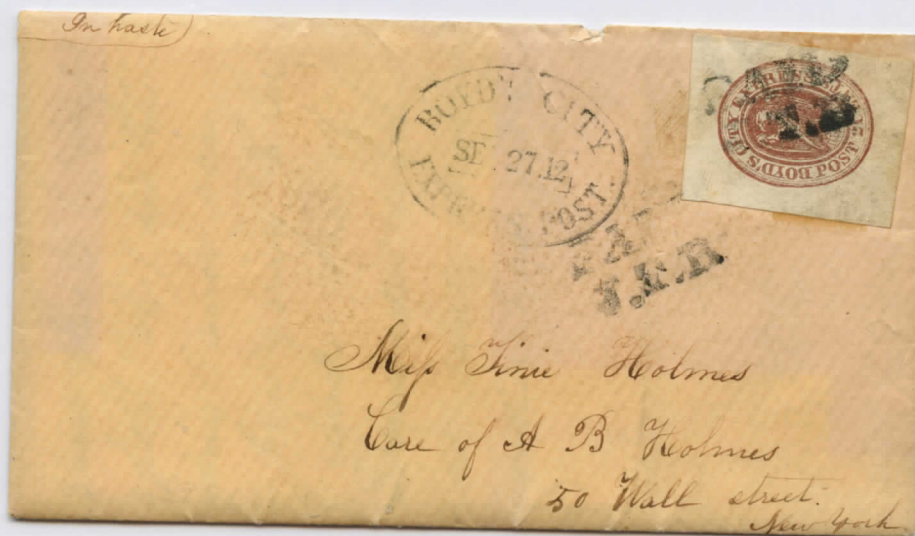 In haste
BOYD'S CITY
27.12
EXPRESS POST.
BOYD'S CITY EXPRESS POST
Miss Tinie Holmes
Care of A B Holmes
50 Wall street.
New York